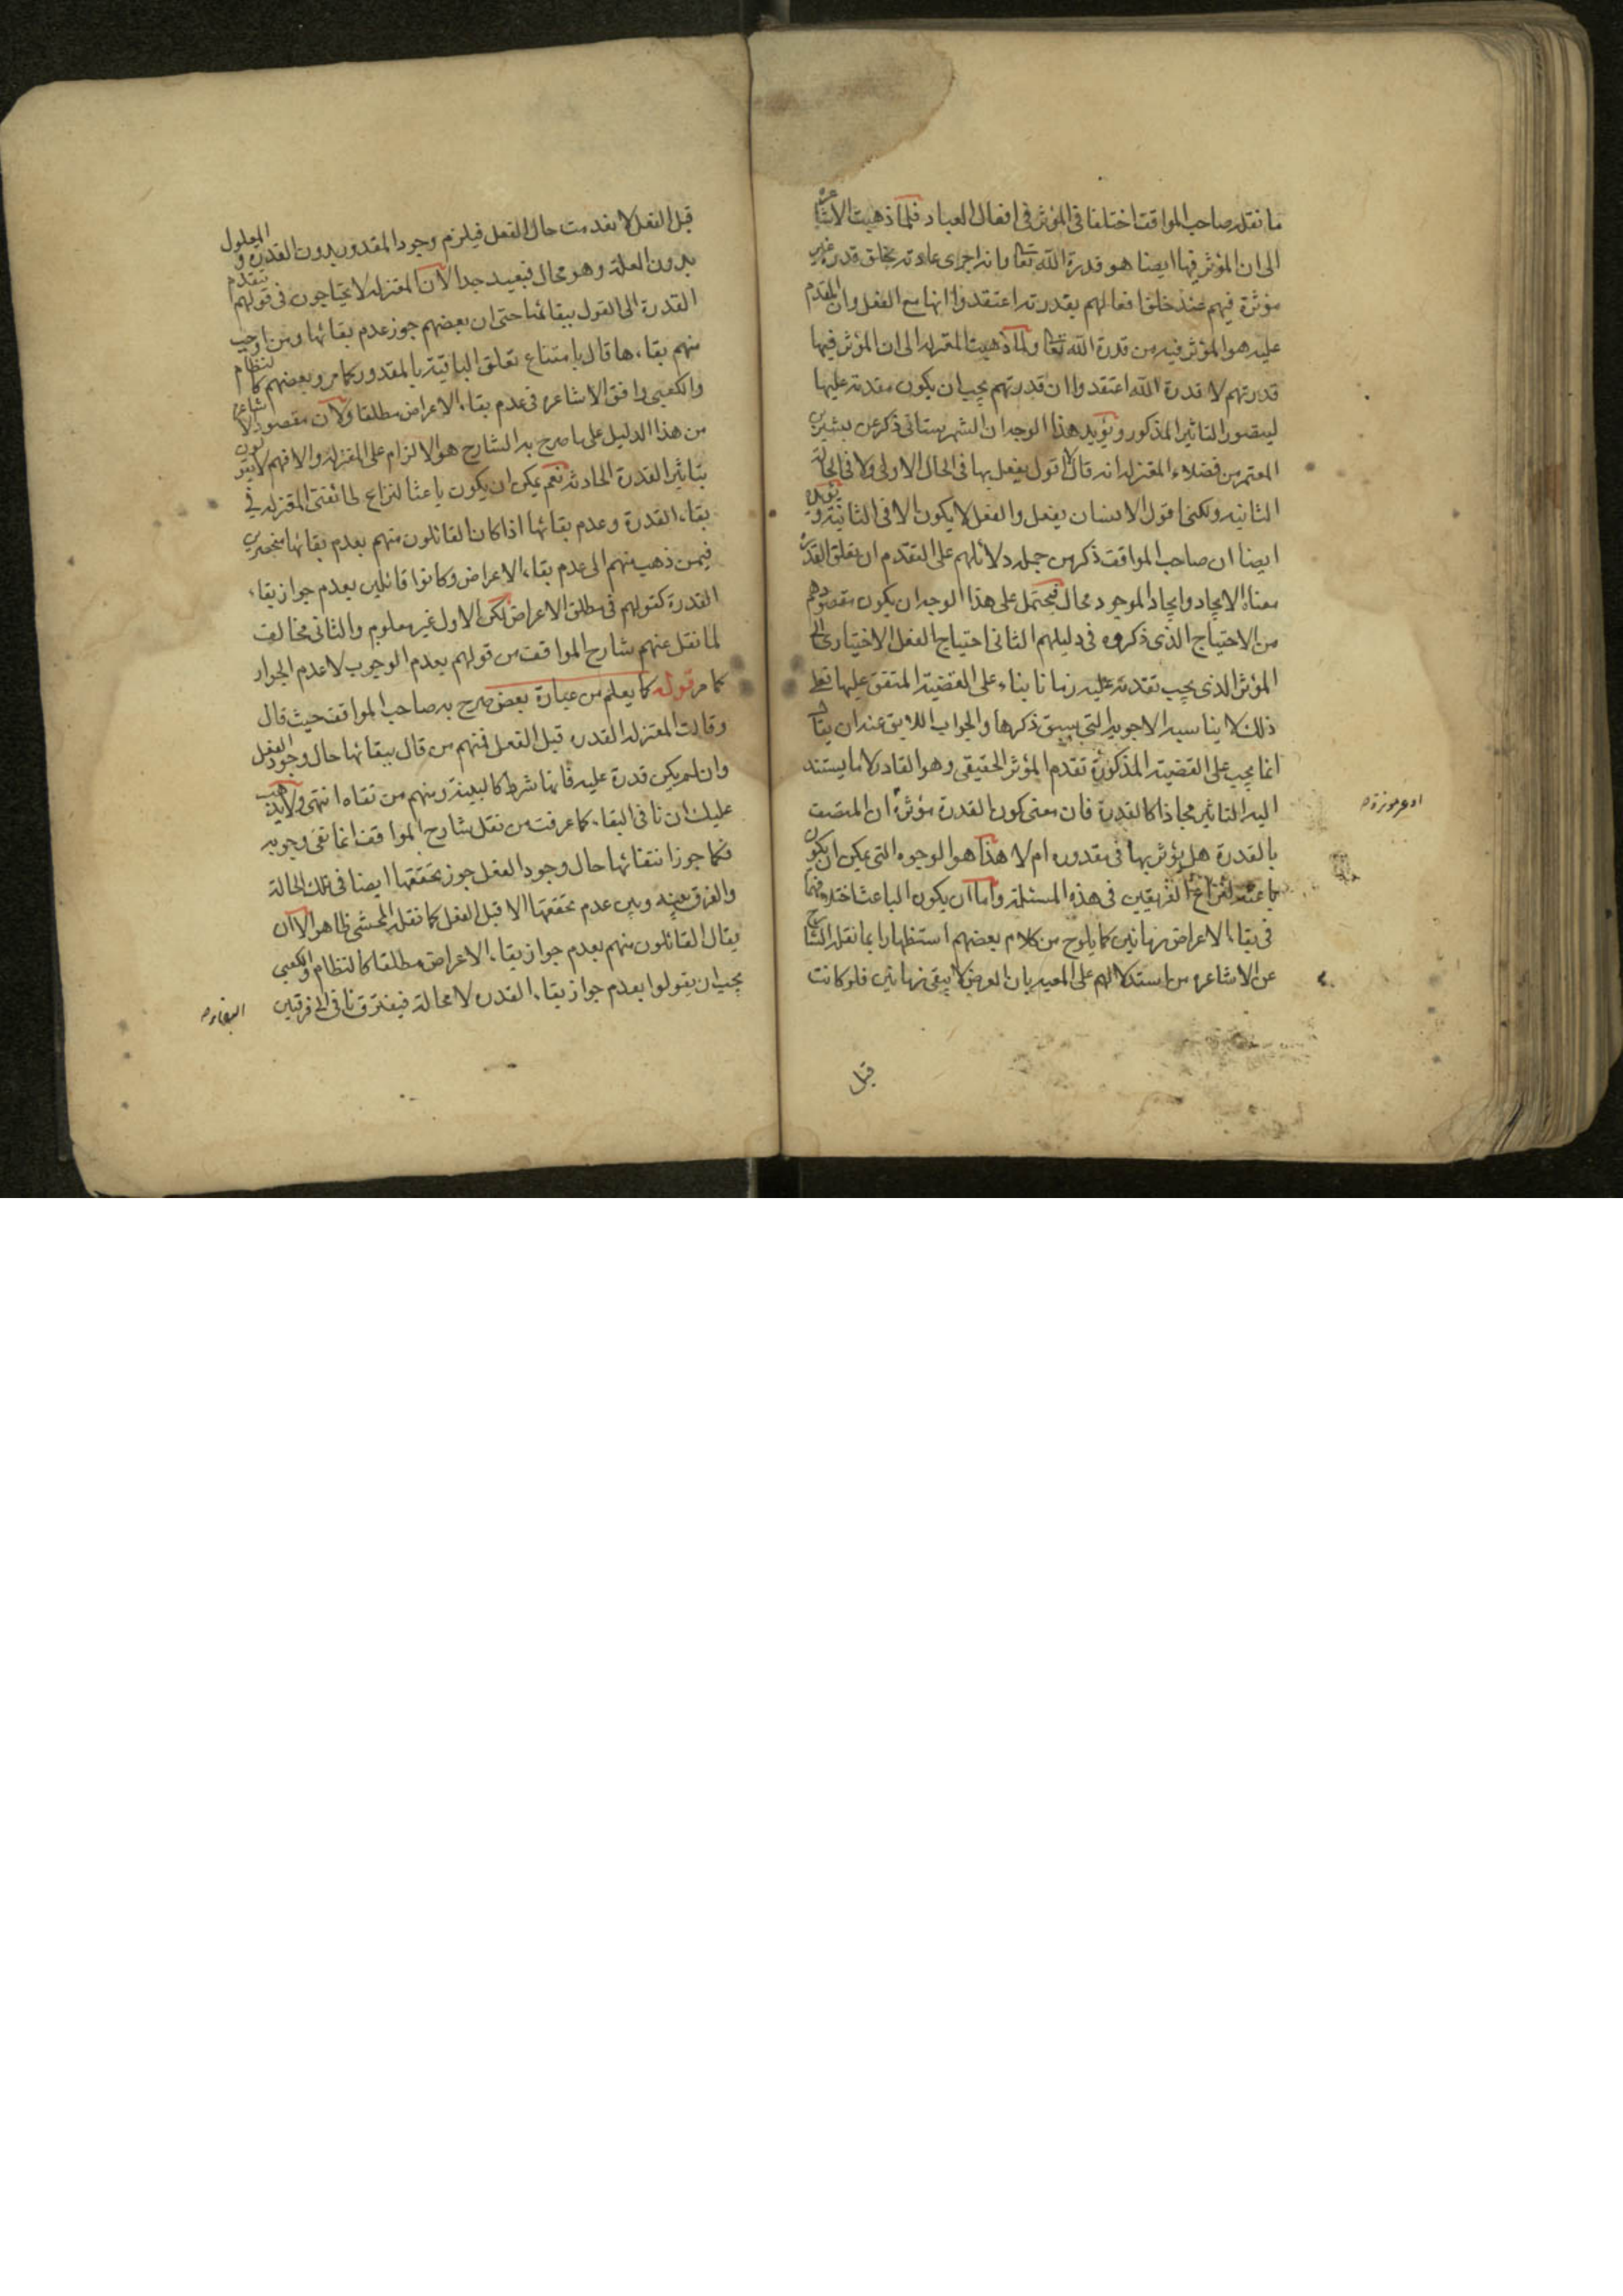 ما نقله صاحب المواقف اختلفا في المؤثر في افعال العباد فلما ذهبت الاشاعرة
الى ان المؤثر فيها ايضا هو قدرة الله تعا وانه اجرى عادته بخلق قدرة غير
مؤثرة فيهم عند خلق افعالهم بقدرته اعتقدوا انها مع الفعل وان المقدم
عليه هو المؤثر فيه من قدرة الله تعا ولما ذهبت المعتزله الى ان المؤثر فيها
قدرتهم لا قدرة الله اعتقدوا ان قدرتهم يجب ان يكون مقدمة عليها
ليتصور التاثير المذكور ويؤيد هذا الوجه ان الشهرستاني ذكر عن بشر بن
المعتمر من فضلاء المعتزله انه قال لا اقول يفعل بها في الحال الاولى ولا في الحالة
الثانيه ولكني اقول الانسان يفعل والفعل لا يكون الا في الثانية ويؤيده
ايضا ان صاحب المواقف ذكر من جملة دلائلهم على التقدم ان تعلق القدرة
معناه الايجاد وايجاد الموجود محال فيحتمل على هذا الوجه ان يكون مقصودهم
من الاحتياج الذي ذكروه في دليلهم الثاني احتياج الفعل الاختياري الى
المؤثر الذي يجب تقدمه عليه زمانا بناء على القضية المتفق عليها فعلى
ذلك لا يناسبه الاجوبه التي سبق ذكرها والجواب اللايق عنه ان يقال
انما يجب على القضية المذكورة تقدم المؤثر الحقيقي وهو القادر لا ما يستند
اليه التاثير مجازا كالقدرة فان معنى كون القدرة مؤثرة ان المتصف
بالقدرة هل يؤثر بها في مقدوره ام لا هذا هو الوجوه التي يمكن ان يكون
باعثه لنزاع الفريقين في هذه المسئلة واما ان يكون الباعث اختلافهما
في بقاء الاعراض زمانين كما يلوح من كلام بعضهم استظهارا بما نقله الشارح
عن الاشاعره من استدلالهم على المعية بان العرض لا يبقى زمانين فلو كانت
قبل
قبل الفعل لانعدمت حال الفعل فيلزم وجود المقدور بدون القدرة والمعلول
بدون العلة وهو محال فبعيد جدا لان المعتزله لا يحتاجون في قولهم بتقدم
القدرة الى القول ببقائها حتى ان بعضهم جوز عدم بقائها ومن اوجب
منهم بقاءها قال بامتناع تعلق الباقية بالمقدور كما مر وبعضهم كالنظام
والكعبي وافق الاشاعره في عدم بقاء الاعراض مطلقا ولان مقصود الاشاعرة
من هذا الدليل على ما صرح به الشارح هو الالزام على المعتزله والا فهم لا يقولون
بتاثير القدرة الحادثه نعم يمكن ان يكون باعثا لنزاع طائفتي المعتزله في
بقاء القدرة وعدم بقائها اذا كان القائلون منهم بعدم بقائها منحصرين
فيمن ذهب منهم الى عدم بقاء الاعراض وكانوا قائلين بعدم جواز بقاء
القدرة كقولهم في مطلق الاعراض لكن الاول غير معلوم والثاني مخالف
لما نقل عنهم شارح المواقف من قولهم بعدم الوجوب لا عدم الجواز
كما مر قوله كما يعلم من عبارة بعض صرح به صاحب المواقف حيث قال
وقالت المعتزله القدرة قبل الفعل فمنهم من قال ببقائها حال وجود الفعل
وان لم يكن قدرة عليه فانها شرط كالبينة ومنهم من نفاه انتهى ولا يذهب
عليك ان نافي البقاء كما عرفت من نقل شارح المواقف انما نفى وجوبه
فكما جوز انتفائها حال وجود الفعل جوز تحققها ايضا في تلك الحالة
والفرق بينه وبين عدم تحققها الا قبل الفعل كما نقله المحشي ظاهر الا ان
يقال القائلون منهم بعدم جواز بقاء الاعراض مطلقا كالنظام والكعبي
يجب ان يقولوا بعدم جواز بقاء القدرة لا محالة فيفترق نافي الى فرقتين